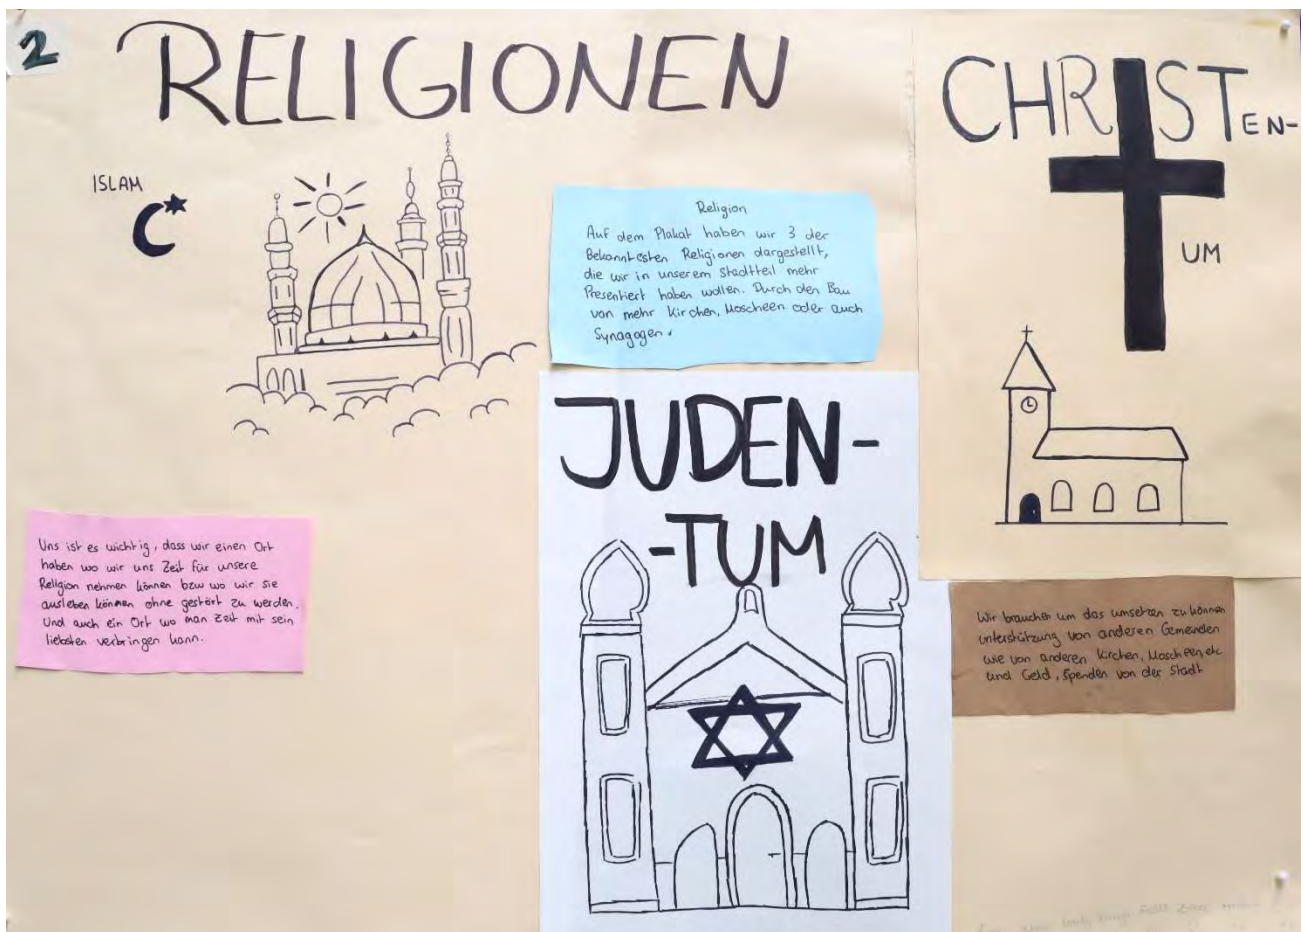 2
RELIGIONEN
ISLAM
Religion
Auf dem Plakat haben wir 3 der
Bekanntesten Religionen dargestellt,
die wir in unserem Stadtteil mehr
Presentiert haben wollen. Durch den Bau
von mehr Kirchen, Moscheen oder auch
Synagogen.
CHRISTEN-
UM
JUDEN-
-TUM
Uns ist es wichtig, dass wir einen Ort
haben wo wir uns Zeit für unsere
Religion nehmen können bzw wo wir sie
ausleben können ohne gestört zu werden.
Und auch ein Ort wo man Zeit mit sein
liebsten verbringen kann.
Wir brauchen um das umsetzen zu können
unterstützung von anderen Gemeinden
wie von anderen Kirchen, Moscheen, etc
und Geld, Spenden von der Stadt